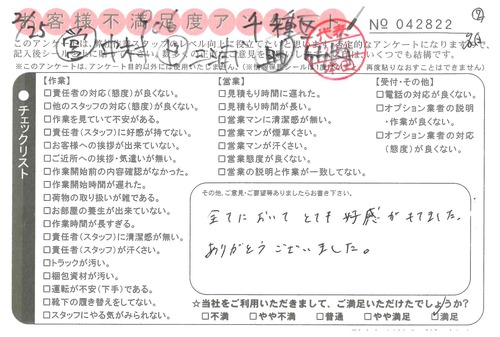 お客様不満足度ア
No 042822
②
【作業】
□責任者の対応(態度)が良くない。
□他のスタッフの対応(態度)が良くない。
□作業を見ていて不安がある。
□責任者(スタッフ)に好感が持てない。
□お客様への挨拶が出来ていない。
□ご近所への挨拶・気遣いが無い。
□作業開始前の内容確認がなかった。
□作業開始時間が遅れた。
□荷物の取り扱いが雑である。
□お部屋の養生が出来ていない。
□作業時間が長すぎる。
□責任者(スタッフ)に清潔感が無い。
□責任者(スタッフ)が汗くさい。
□トラックが汚い。
□梱包資材が汚い。
□運転が不安(下手)である。
□靴下の履き替えをしてない。
□スタッフにやる気がみられない。
【営業】
□見積もり時間に遅れた。
□見積もり時間が長い。
□営業マンに清潔感が無い。
□営業マンが煙草くさい。
□営業マンが汗くさい。
□営業態度が良くない。
□営業の説明と作業が一致してない。
【受付・その他】
□電話の対応が良くない。
□オプション業者の説明
・作業が良くない。
□オプション業者の対応
(態度)が良くない。
チェックリスト
その他、ご意見・ご要望等ありましたらお書き下さい。
全てにおいてとても好感がもてました。
ありがとうございました。
☆当社をご利用いただきまして、ご満足いただけたでしょうか?
□不満 □やや不満 □普通 □やや満足 □満足